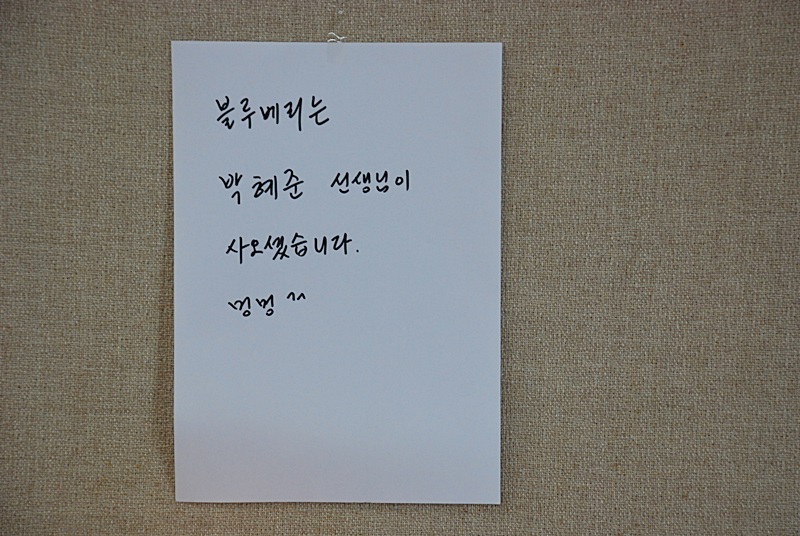 블루베리는
박혜준 선생님이
사오셨습니다.
멍멍 ^^